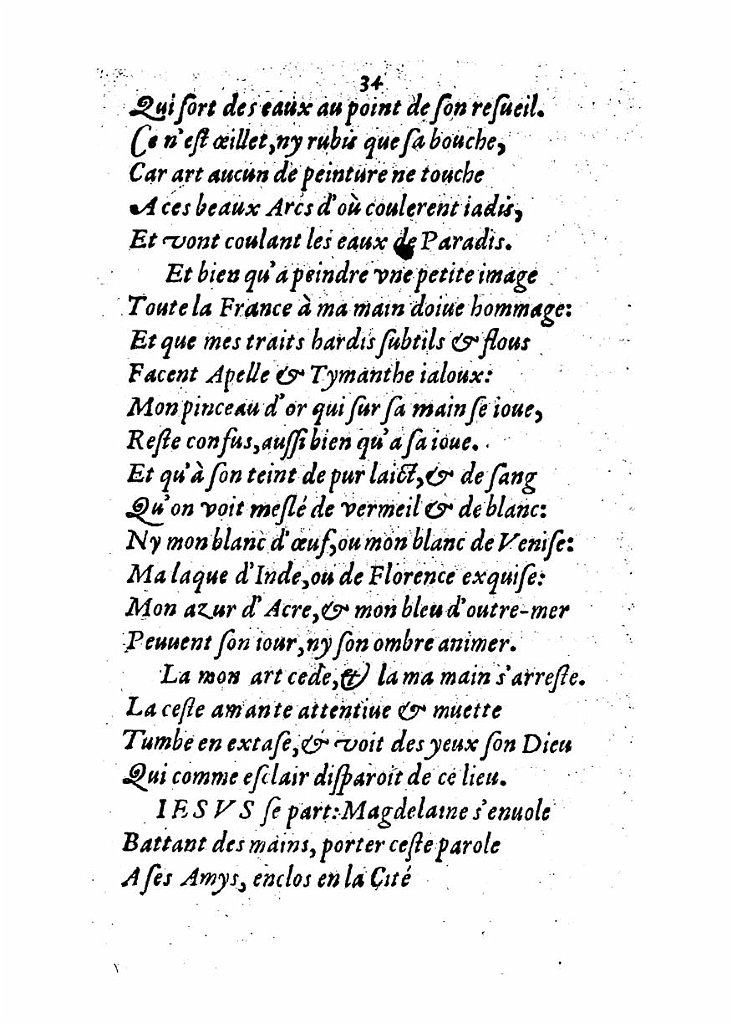 34
Qui ſort des eaux au point de ſon reſueil.
Ce n'eſt œillet, ny rubis que ſa bouche,
Car art aucun de peinture ne touche
A ces beaux Arcs d'où coulerent iadis,
Et vont coulant les eaux de Paradis.
Et bien qu'a peindre vne petite image
Toute la France à ma main doiue hommage:
Et que mes traits hardis ſubtils & flous
Facent Apelle & Tymanthe ialoux:
Mon pinceau d'or qui ſur ſa main ſe ioue,
Reſte confus, auſſi bien qu'a ſa ioue.
Et qu'à ſon teint de pur laict, & de ſang
Qu'on voit meſlé de vermeil & de blanc:
Ny mon blanc d'œuf, ou mon blanc de Veniſe:
Ma laque d'Inde, ou de Florence exquiſe:
Mon azur d'Acre, & mon bleu d'outre-mer
Peuuent ſon iour, ny ſon ombre animer.
La mon art cede, & la ma main s'arreſte.
La ceſte amante attentiue & muette
Tumbe en extaſe, & voit des yeux ſon Dieu
Qui comme eſclair diſparoit de ce lieu.
IESVS ſe part: Magdelaine s'enuole
Battant des mains, porter ceſte parole
A ſes Amys, enclos en la Cité